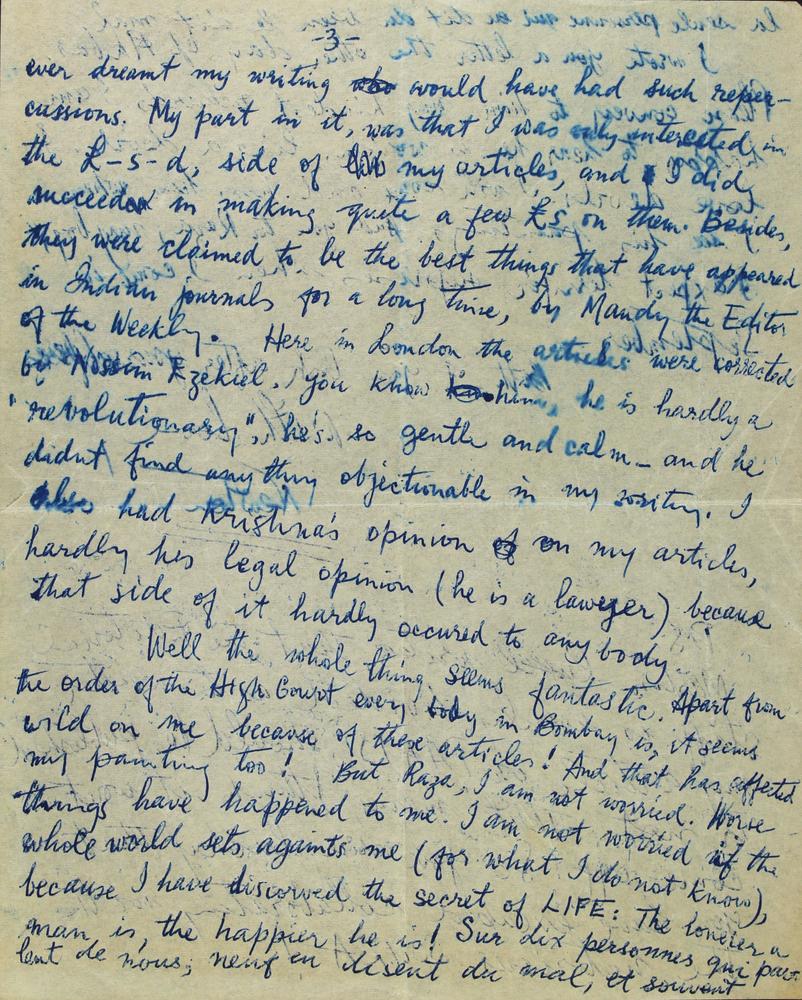 -3-
ever dreamt my writing would have had such reper-
cussions. My part in it, was that I was only interested, in
the £-s-d, side of my articles, and I did,
succeeded in making quite a few £s on them. Besides,
they were claimed to be the best things that have appeared
in Indian journals for a long time, by Mandy the Editor
of the Weekly. Here in London the articles were corrected
by Nissim Ezekiel, you know him, he is hardly a
"revolutionary", he's so gentle and calm - and he
didnt find anything objectionable in my . I
also had Krishna's opinion on my articles,
hardly his legal opinion (he is a laweyer) because
that side of it hardly occured to any body.
Well the whole thing seems fantastic. Apart from
the order of the High Court every body in Bombay is, it seems
wild on me because of these articles! And that has affected
my painting too! But Raza, I am not worried. Worse
things have happened to me. I am not worried if the
whole world sets againts me (for what I do not know),
because I have discorved the secret of LIFE: The lonelier a
man is, the happier he is! Sur dix personnes qui par-
lent de nous, neuf en disent du mal, et souvent